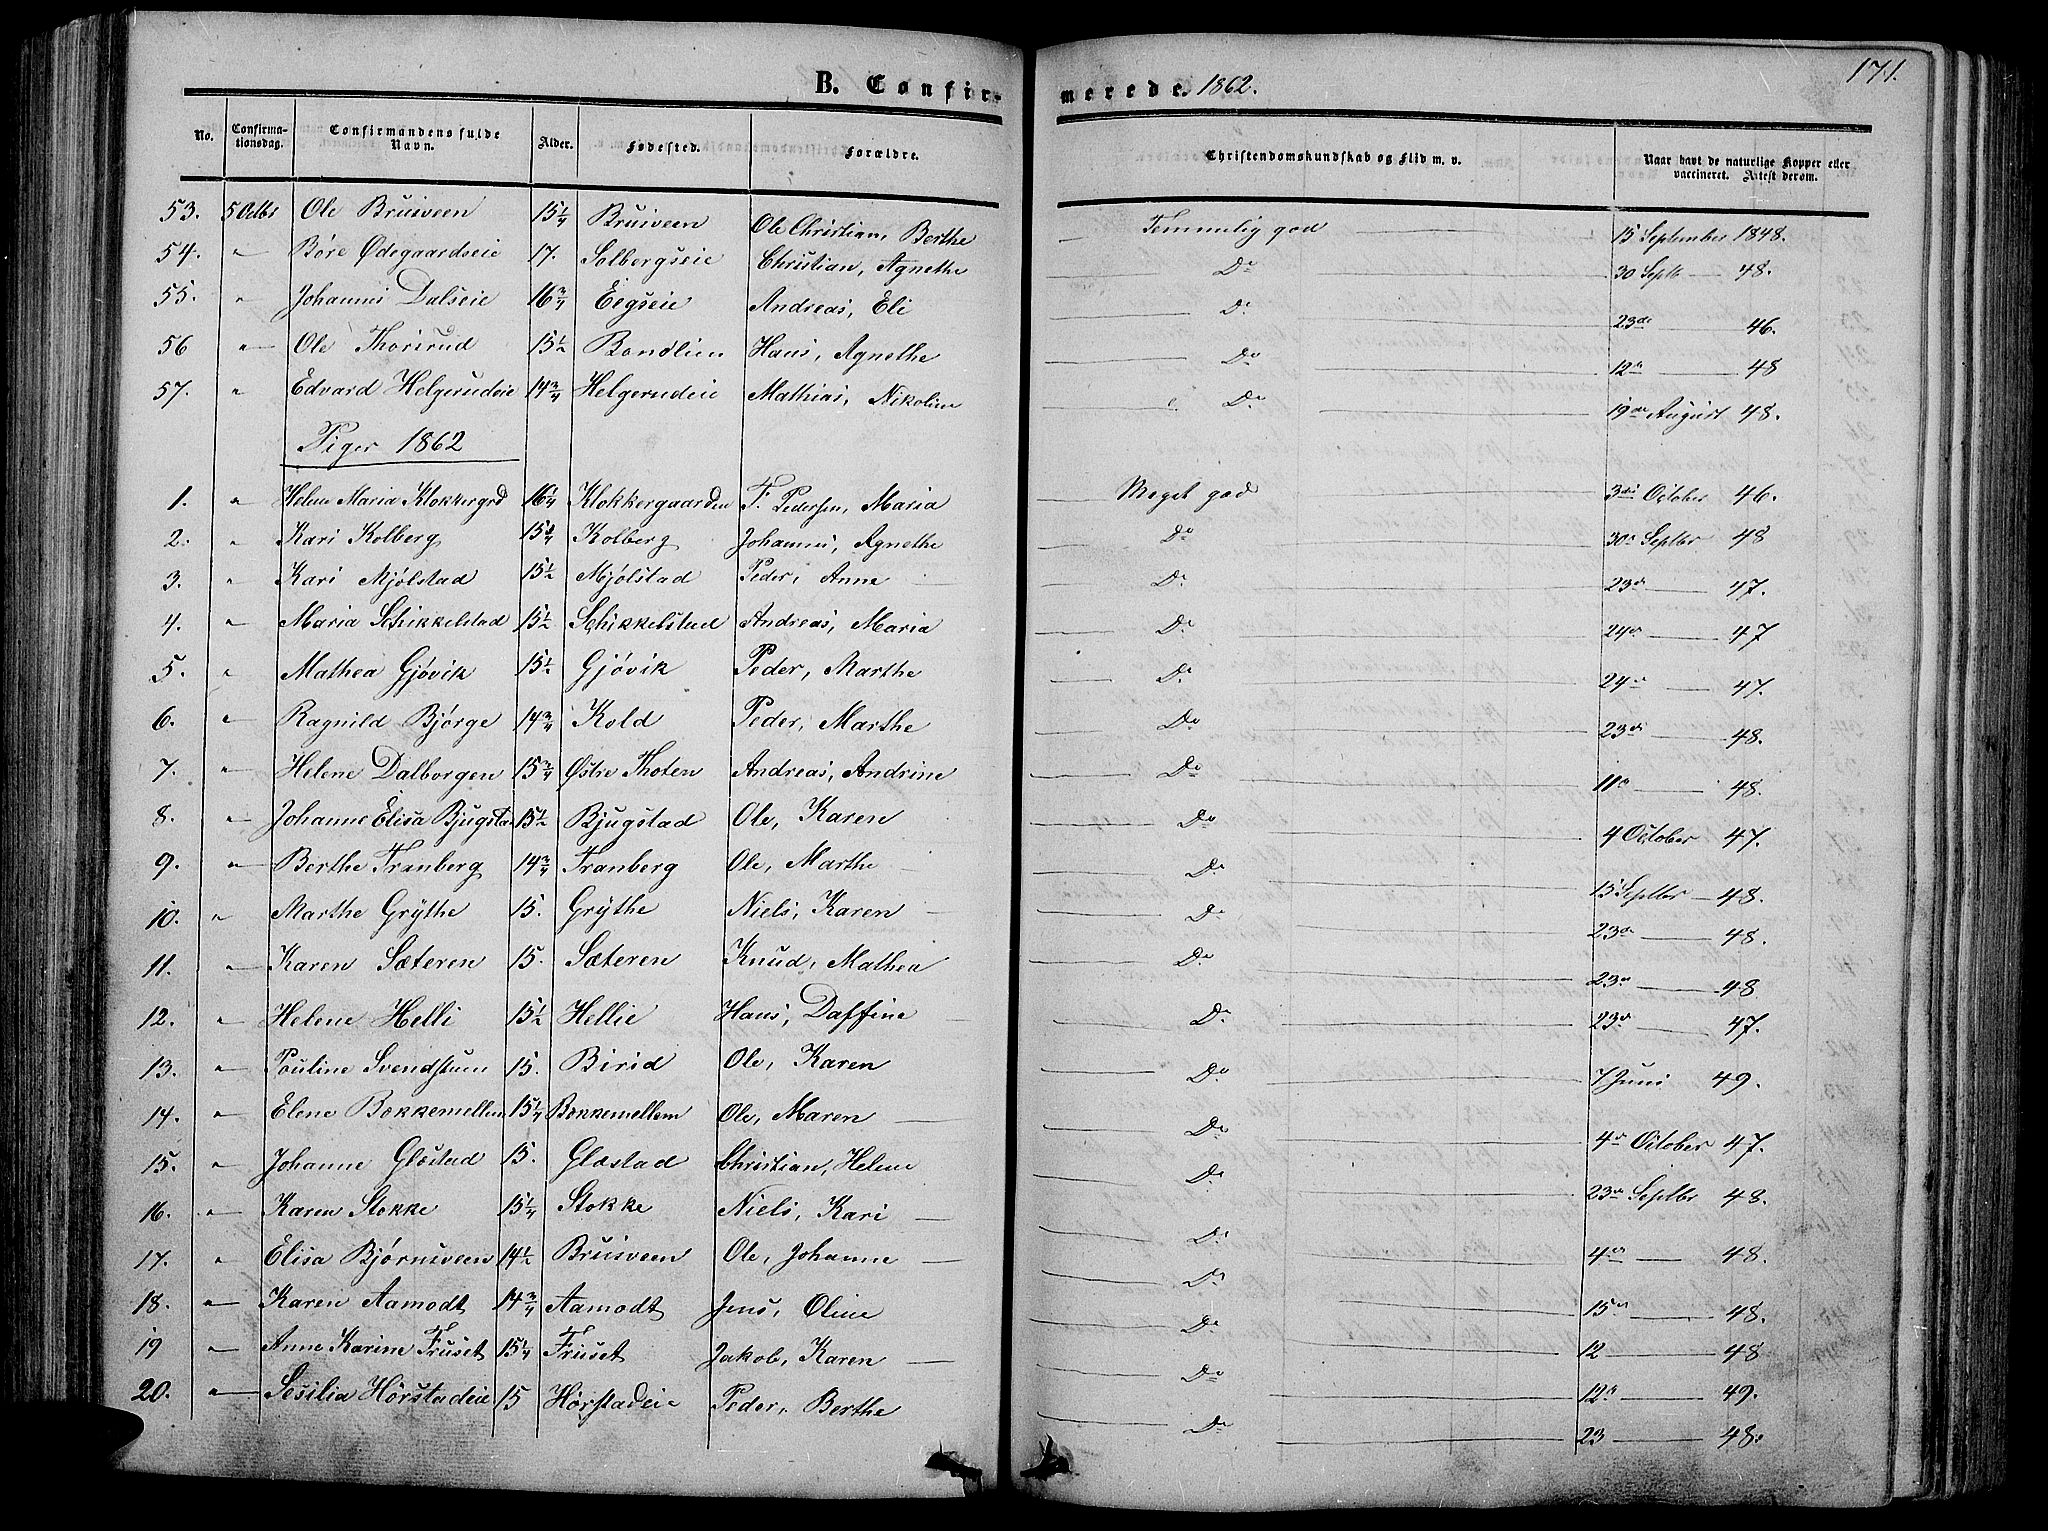 171.
B. Confirmerede. 1862.
No. Confirmationsdag. Confirmandens fulde Navn. Alder. Fødested. Forældre. Christendomskundskab og Flid m. v. Naar havt de naturlige Kopper eller vaccineret. Attest derom.
53. 5 Octbr Ole Bruisveen 15 1/4 Bruisveen Ole Christian, Berthe Temmelig god 15 September 1848.
54. " Børe Ødegaardseie 17. Solbergseie Christian, Agnethe Do 30 Septbr — 48.
55. " Johannes Dalseie 16 3/4 Eegseie Andreas, Eli Do 23de — 46.
56 " Ole Thorsrud 15 1/2 Bondlien Hans, Agnethe Do 12te — 48
57. " Edvard Helgerudeie 14 3/4 Helgerudeie Mathias, Nikoline Do 19de August 48.
Piger 1862
1. " Helene Maria Klokkergrd 16 1/4 Klokkergaarden F. Pedersen, Maria Meget god 3die October 46.
2. " Kari Kolberg 15 1/4 Kolberg Johannes, Agnethe Do 30te Septbr 48
3. " Kari Mjølstad 15 1/2 Mjølstad Peder, Anne — Do 23de — 47.
4. " Maria Schikkelstad 15 1/2 Schikkelstad Andreas, Maria Do 24de — 47
5. " Mathea Gjøvik 15 1/2 Gjøvik Peder, Marthe Do 24de — 47.
6. " Ragnild Bjørge 14 3/4 Kold Peder, Marthe Do 23de — 48.
7. " Helene Dalborgen 15 3/4 Østre Thoten Andreas, Andrine Do 11te — 48.
8. " Johanne Elisa Bjugstad 15 1/2 Bjugstad Ole, Karen Do 4 October 47.
9. " Berthe Tranberg 14 3/4 Tranberg Ole, Marthe — Do 15 Septbr — 48.
10. " Marthe Grythe 15. Grythe Niels, Karen — Do 23de — 48.
11. " Karen Sæteren 15. Sæteren Knud, Mathea Do 23de — 48.
12. " Helene Helli 15 1/2 Hellie Hans, Daffine Do 23de — 47.
13. " Pouline Svendstuen 15. Birid Ole, Karen Do 7 Juni 49.
14. " Elene Bokkemellem 15 1/4 Bokkemellem Ole, Maren — Do 4de October 47.
15. " Johanne Glæstad 15. Glæstad Christian, Helene Do 23de Septbr 48.
16. " Karen Stokke 15 1/4 Stokke Niels, Kari — Do 4de — 48.
17. " Elisa Bjørnsveen 14 1/2 Bruisveen Ole, Johanne — Do 15de — 48.
18. " Karen Aamodt 14 3/4 Aamodt Jens, Oline Do 12 — 48
19 " Anne Karine Fruset 15 1/4 Fruset Jakob, Karen — Do 12te — 49.
20. " Sesilia Hørstadeie 15 Hørstadeie Peder, Berthe Do 23 — 48.